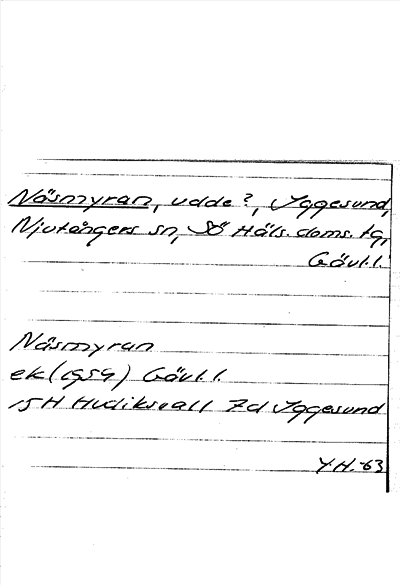 Näsmyran, udde?, Iggesund,
Njutångers sn, SÖ Häls. doms. tg,
Gävl.l.
Näsmyran
ek (1959) Gävl.l.
15H Hudiksvall 7d Iggesund
Y.H. -63